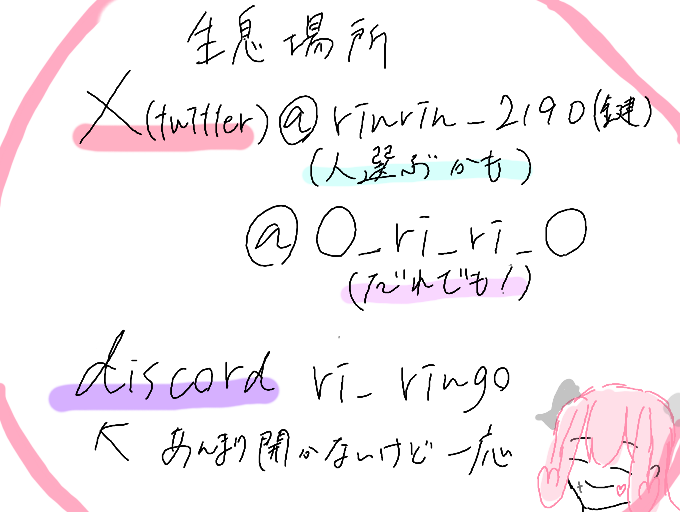 生息場所
X(twitter)@rinrin_2190(鍵)
(人選ぶかも)
@O_ri_ri_O
(だれでも!)
discord ri_ringo
↸ あんまり開かないけど一応